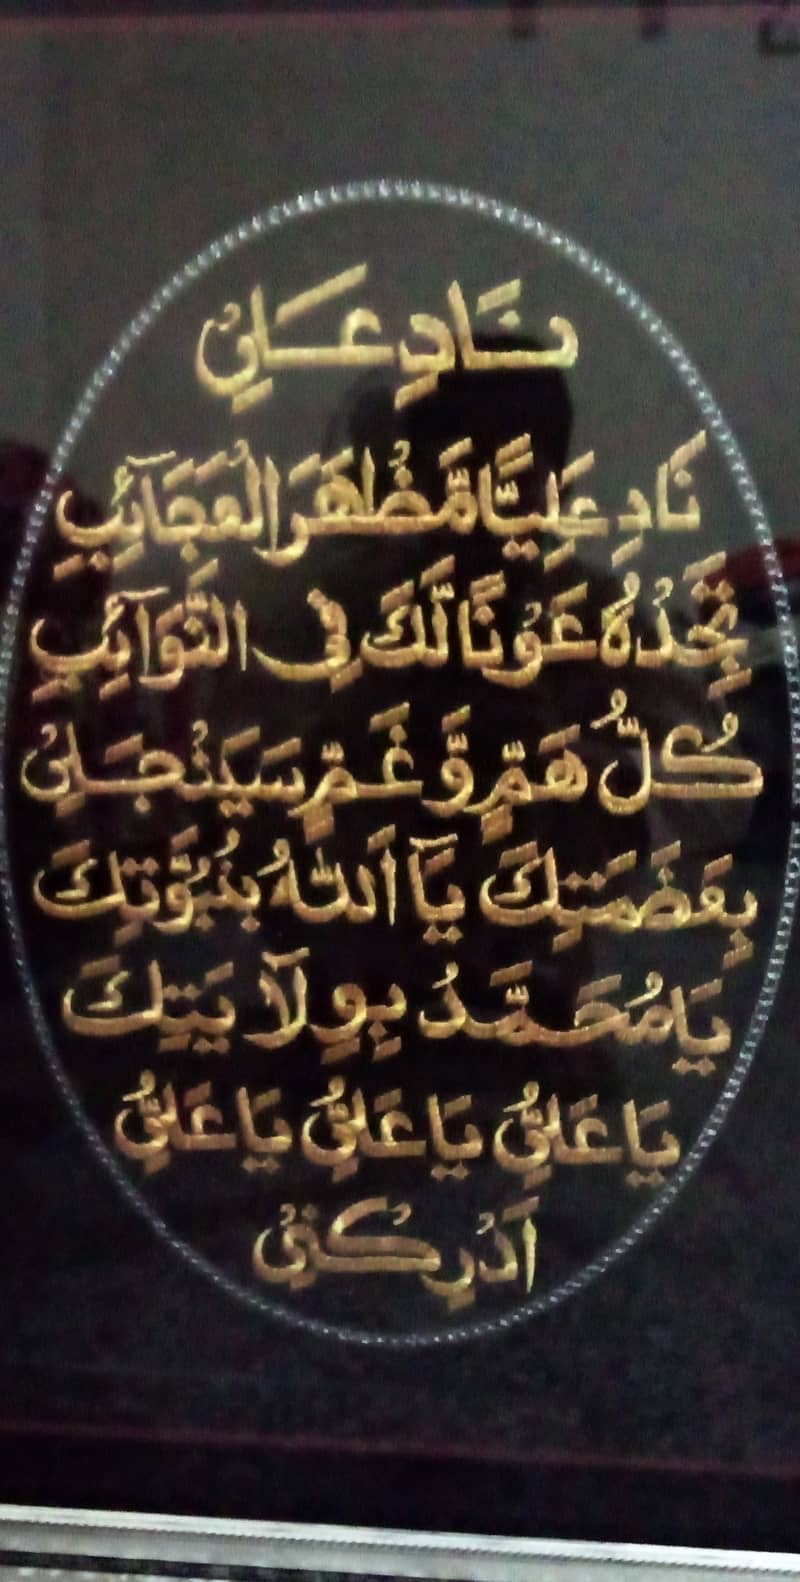 نَادِ عَلِیْ
نَادِ عَلِیًّا مَّظْهَرَ الْعَجَآئِبِ
تَجِدْهُ عَوْنًا لَّكَ فِی النَّوَآئِبِ
كُلُّ هَمٍّ وَّ غَمٍّ سَیَنْجَلِیْ
بِعَضَمَتِكَ یَآ اَللّٰهُ بِنُبُوَّتِكَ
یَا مُحَمَّدُ بِوِلَا یَتِكَ
یَا عَلِیُّ یَا عَلِیُّ یَا عَلِیُّ
اَدْرِكْنِیْ